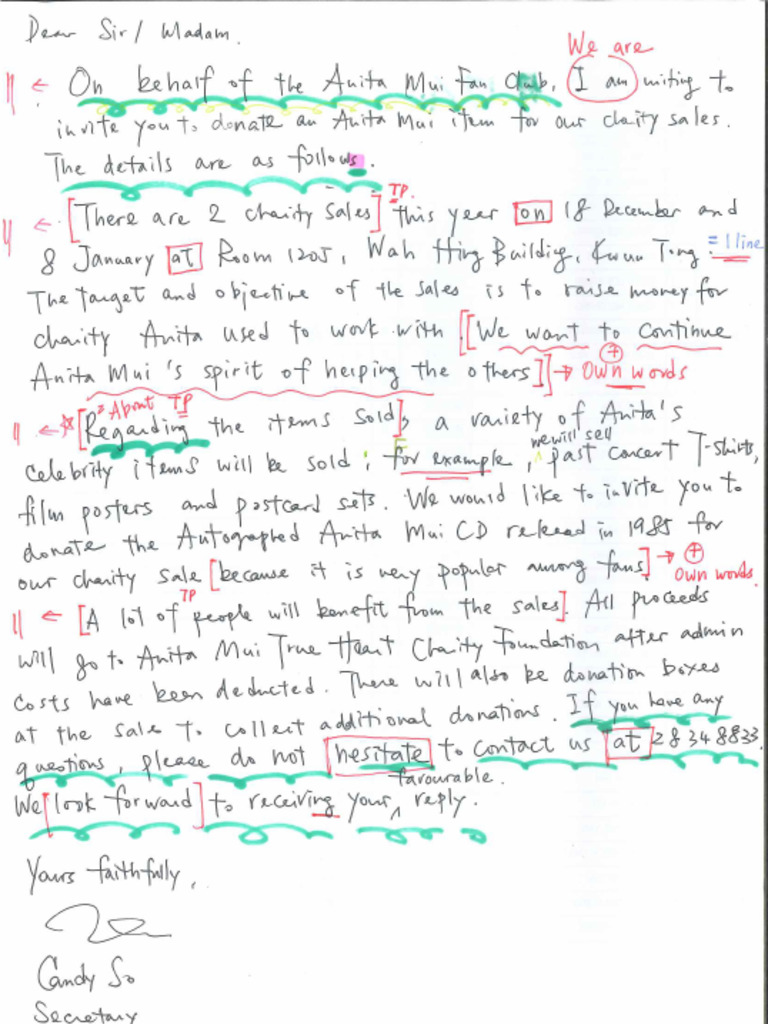 Dear Sir / Madam.
We are
11 ← On behalf of the Anita Mui Fan Club, I am writing to
invite you to donate an Anita Mui item for our chaity sales.
The details are as follows.
11 ← [There are 2 charity sales] TP this year on 18 December and
8 January at Room 1205, Wah Hing Building, Kwun Tong. = 1 line
The target and objective of the sales is to raise money for
charity Anita used to work with [[We want to continue
Anita Mui's spirit of helping the others]] → + Own words
= About TP
11 ← ☆ [Regarding the items sold], a variety of Anita's
we will sell
celebrity items will be sold, for example, past concert T-shirts,
film posters and postcard sets. We would like to invite you to
donate the Autographed Anita Mui CD in 1985 for
our charity sale [because it is very popular among fans] → + Own words.
TP
11 ← [A lot of people will benefit from the sales]. All proceeds
will go to Anita Mui True Heart Charity Foundation after admin
costs have been deducted. There will also be donation boxes
at the sales to collect additional donations. If you have any
questions, please do not hesitate to contact us at 28348833.
favourable.
We [look forward] to receiving your ^ reply.
Yours faithfully,
Candy So
Secretary